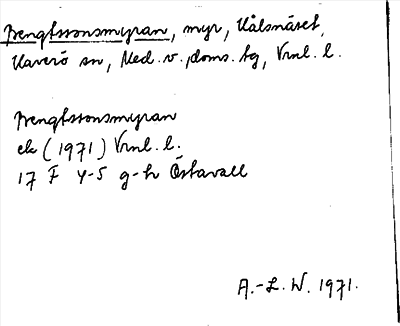 Bengtssonsmyran, myr, Kälsnäset,
Haverö sn, Med. v. doms. tg, Vrnl. l.
Bengtssonsmyran
ek (1971) Vrnl. l.
17 F 4-5 g-h Östavall
A.-L. W. 1971.